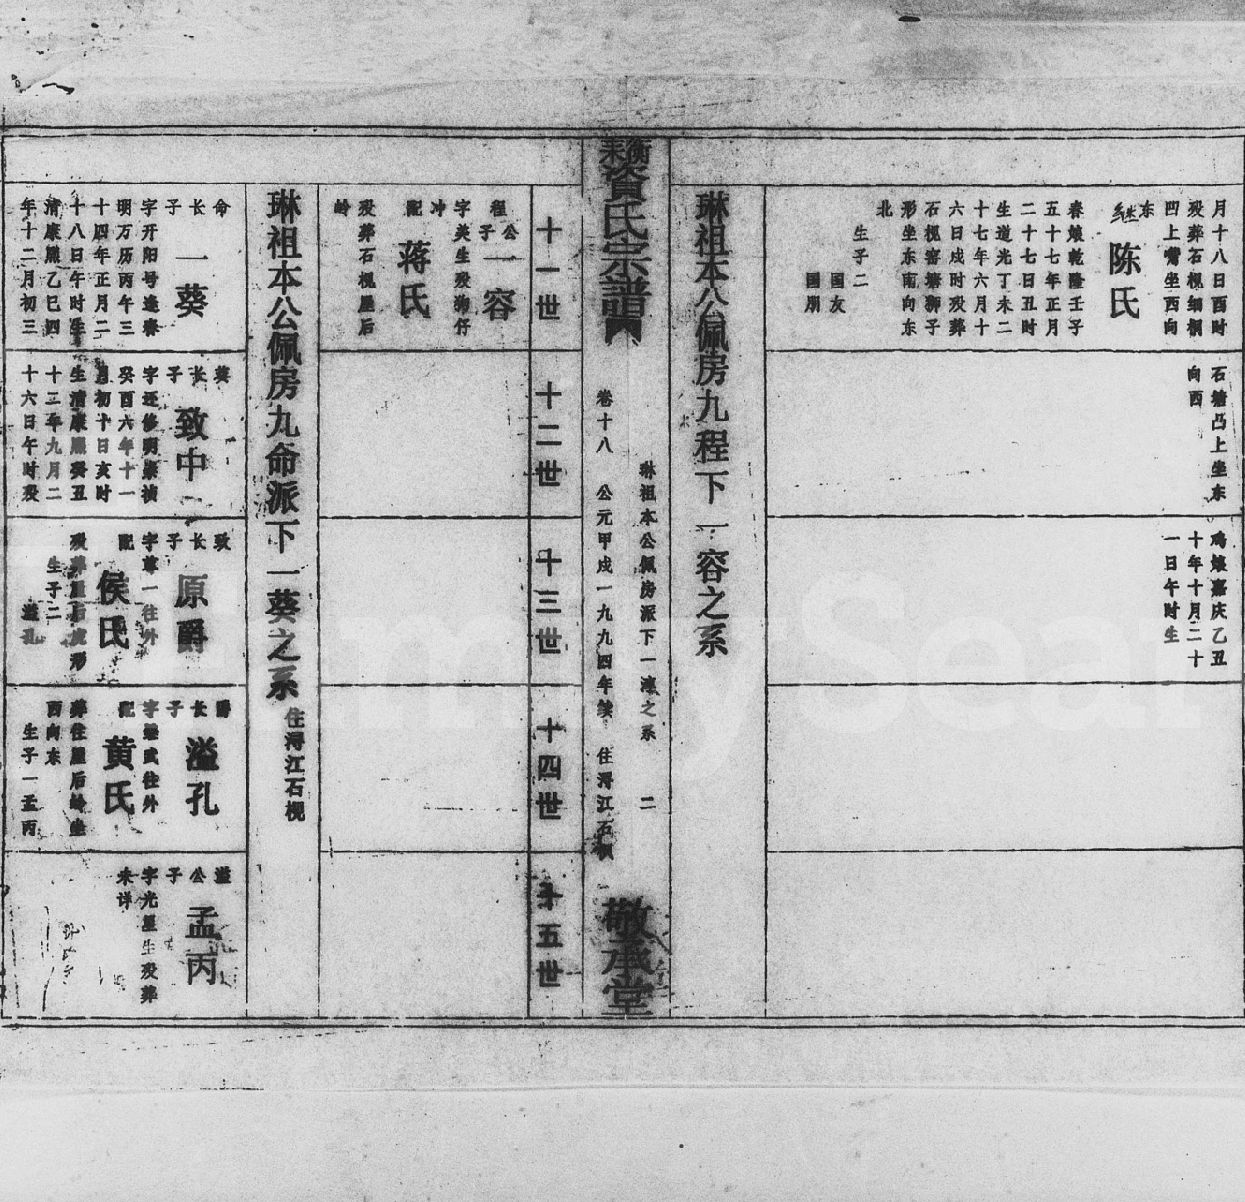 月十八日酉时
殁葬石枧细桐
凹上嘴坐西向
东
继陈氏
春娘乾隆壬子
五十七年正月
二十七日丑时
生道光丁未二
十七年六月十
六日戌时殁葬
石枧窑塘狮子
形坐东南向东
北
生子二
国友
国朋
石塘凸上坐东
向西
鸡娘嘉庆乙丑
十年十月二十
一日午时生
琳祖本公佩房九程下一容之系
衡耒資氏宗譜
琳祖本公佩房派下一 之系 二
卷十八 公元甲戌一九九四年续 住浔江石枧
敬承堂
十一世
十二世
十三世
十四世
十五世
程公子一容
字美生殁 仔
冲
配蒋氏
殁葬石枧屋后
岭
琳祖本公佩房九命派下一葵之系
住浔江石枧
命长子一葵
字开阳号逢春
明万历丙午三
十四年正月二
十八日午时生
清康熙乙巳四
年十二月初三
葵长子致中
字 修明崇祯
癸酉六年十一
月初十日亥时
生清康熙癸丑
十二年九月二
十六日午时殁
致长子原爵
字尊一往外
配侯氏
殁葬屋后 形
生子二
溢孔
爵长子溢孔
字 武往外
配黄氏
葬住屋后岭坐
西向东
生子一孟丙
溢公子孟丙
字光星生殁葬
未详